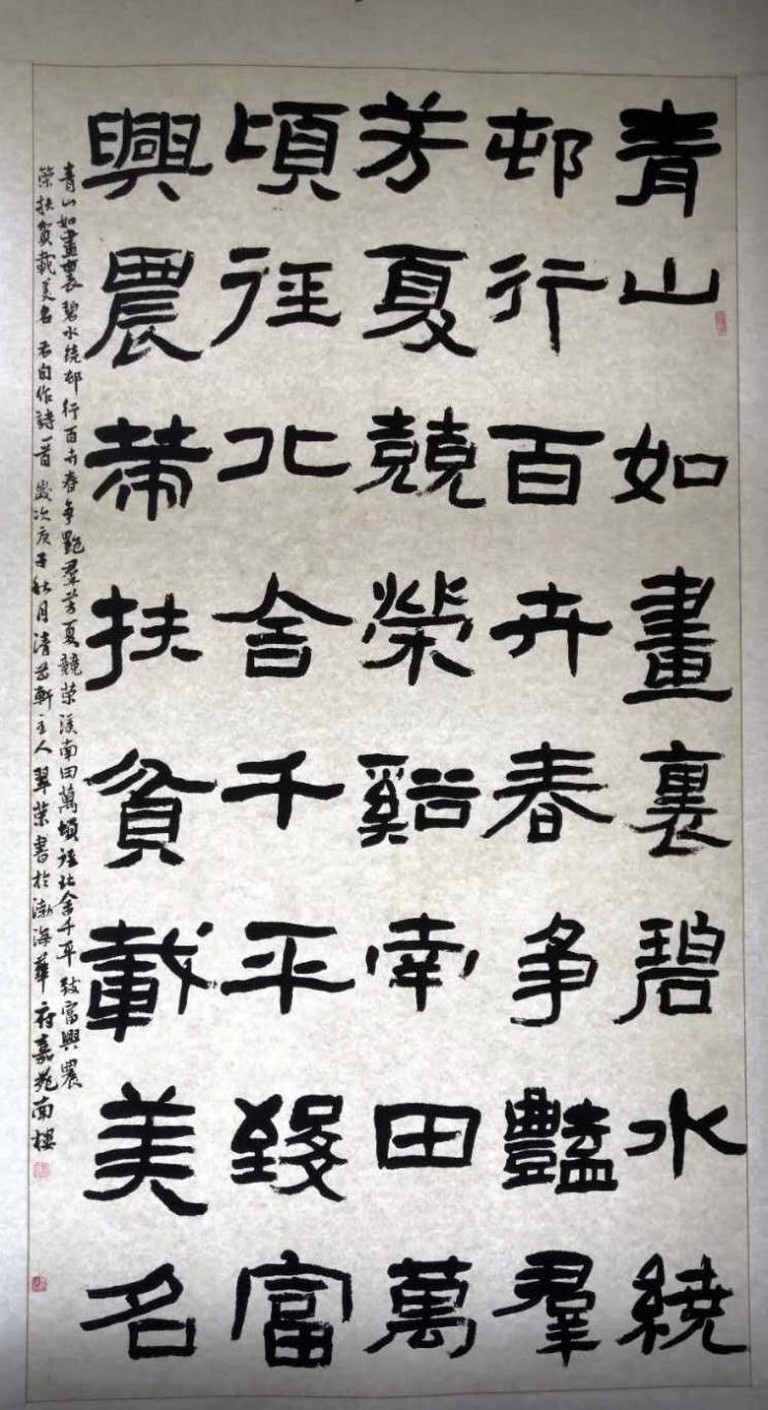 青山如畫裏碧水繞
邨行百卉春爭艷羣
芳夏競榮谿南田萬
頃徑北舍千平致富
興農榮扶貧載美名
青山如畫裏碧水繞邨行百卉春爭艷羣芳夏競榮溪南田萬頃徑北舍千平致富興農
榮扶貧載美名 右自作詩一首歲次庚子秋月清芸軒主人翠榮書於渤海華府嘉苑南樓